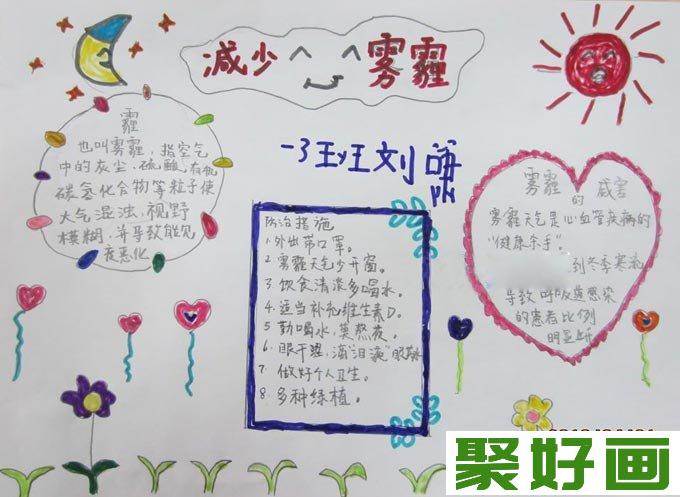 减少 雾霾
一3班 刘
霾
也叫雾霾，指空气
中的灰尘，硫酸，有机
碳氢化合物等粒子使
大气混浊，视野
模糊，并导致能见
度恶化
防治措施
1.外出带口罩。
2 雾霾天气少开窗。
3 饮食清淡多喝水。
4.适当补充维生素D。
5 勤喝水，莫熬夜。
6.眼干涩，滴"泪液"眼
7 做好个人卫生。
8.多种绿植。
雾霾 的 威害
雾霾天气是心血管疾病的
"健康杀手"。
到冬季寒流
导致呼吸道感染
的患者比例
明显上升
聚好画